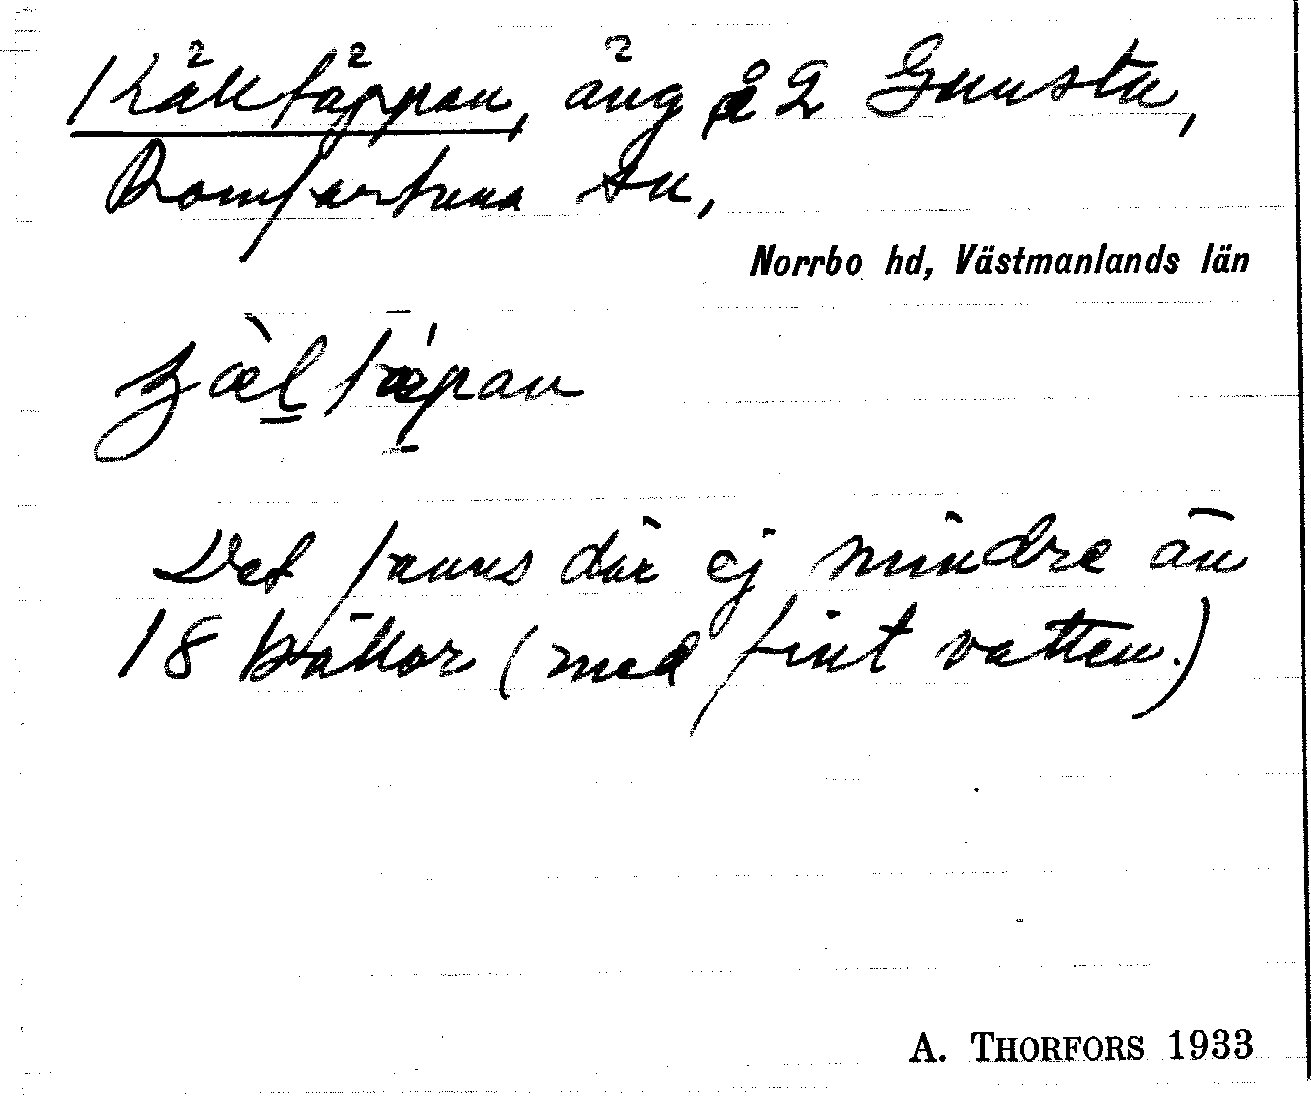 Källtäppan, äng å 2 Gunsta,
Romfartuna sn,
Norrbo hd, Västmanlands län
çæ̀l tǽpan
Det fanns där ej mindre än
18 källor (med fint vatten.)
A. THORFORS 1933